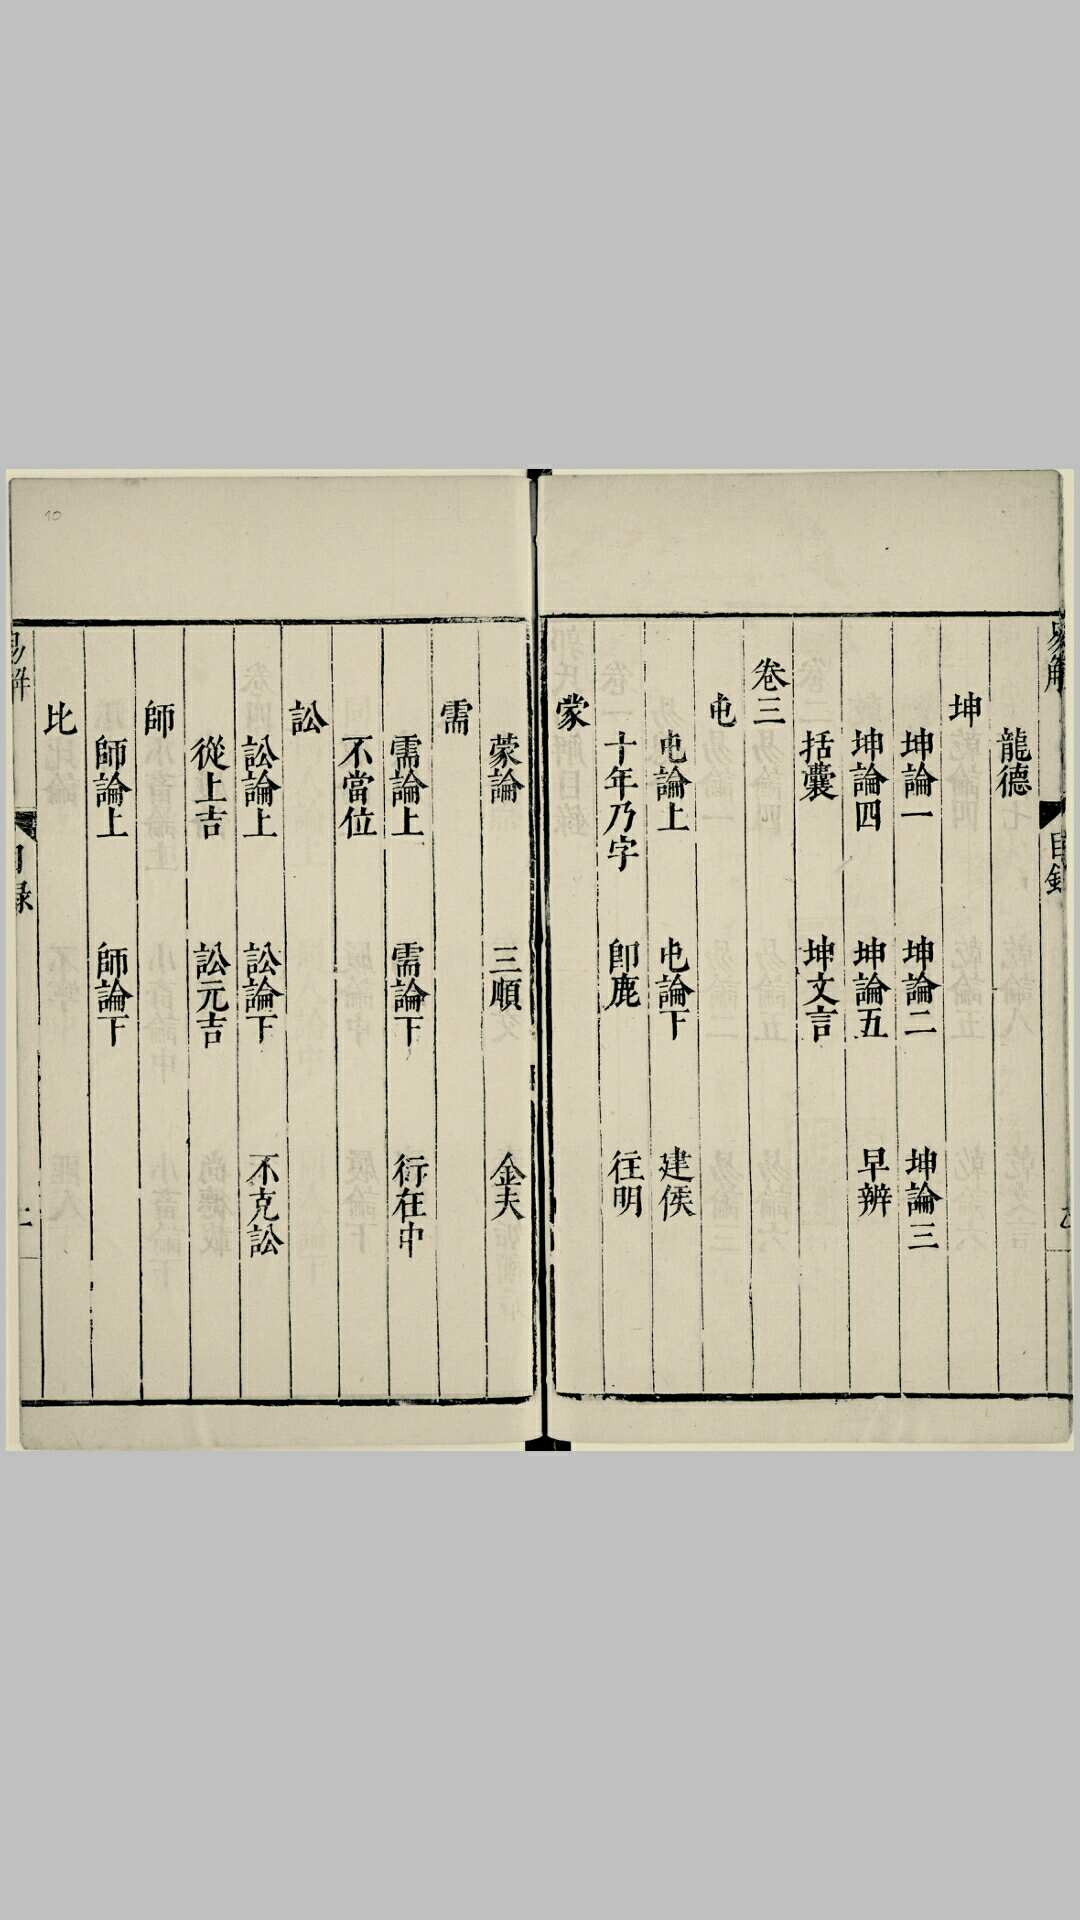 易解 目錄
龍德
坤
坤論一 坤論二 坤論三
坤論四 坤論五 早辨
括囊 坤文言
卷三
屯
屯論上 屯論下 建侯
十年乃字 卽鹿 往明
蒙
蒙論 三順 金夫
需
需論上 需論下 衍在中
不當位
訟
訟論上 訟論下 不克訟
從上吉 訟元吉
師
師論上 師論下
比
易解 目錄
10